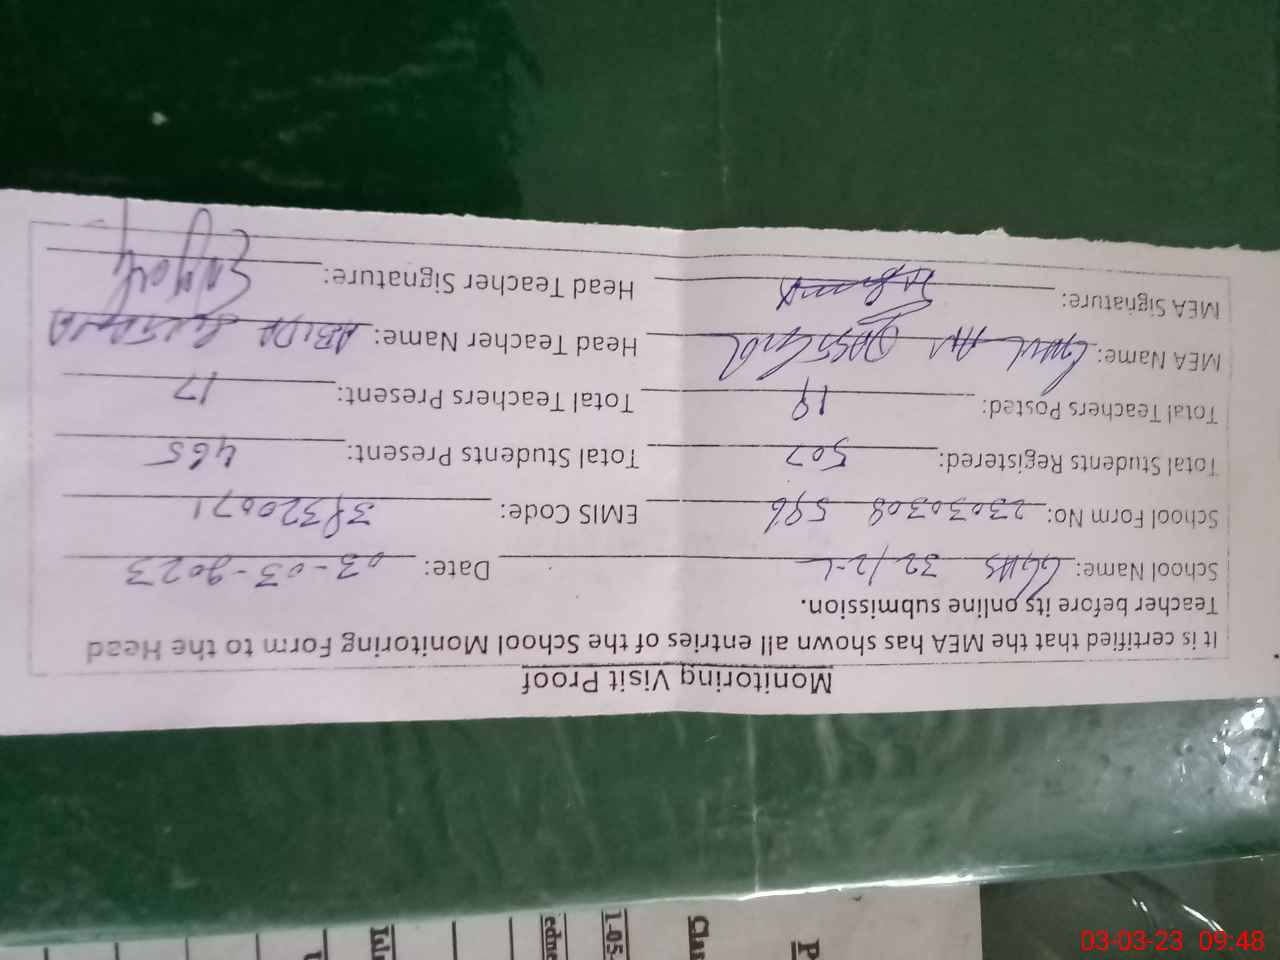 Monitoring Visit Proof
It is certified that the MEA has shown all entries of the School Monitoring Form to the Head
Teacher before its online submission.
School Name: GGHS 32/2-L Date: 03-03-2023
School Form No: 23030308 596 EMIS Code: 39320071
Total Students Registered: 507 Total Students Present: 465
Total Teachers Posted: 19 Total Teachers Present: 17
MEA Name: Head Teacher Name: ABIDA
MEA Signature: Head Teacher Signature:
1-05-
03-03-23 09:48